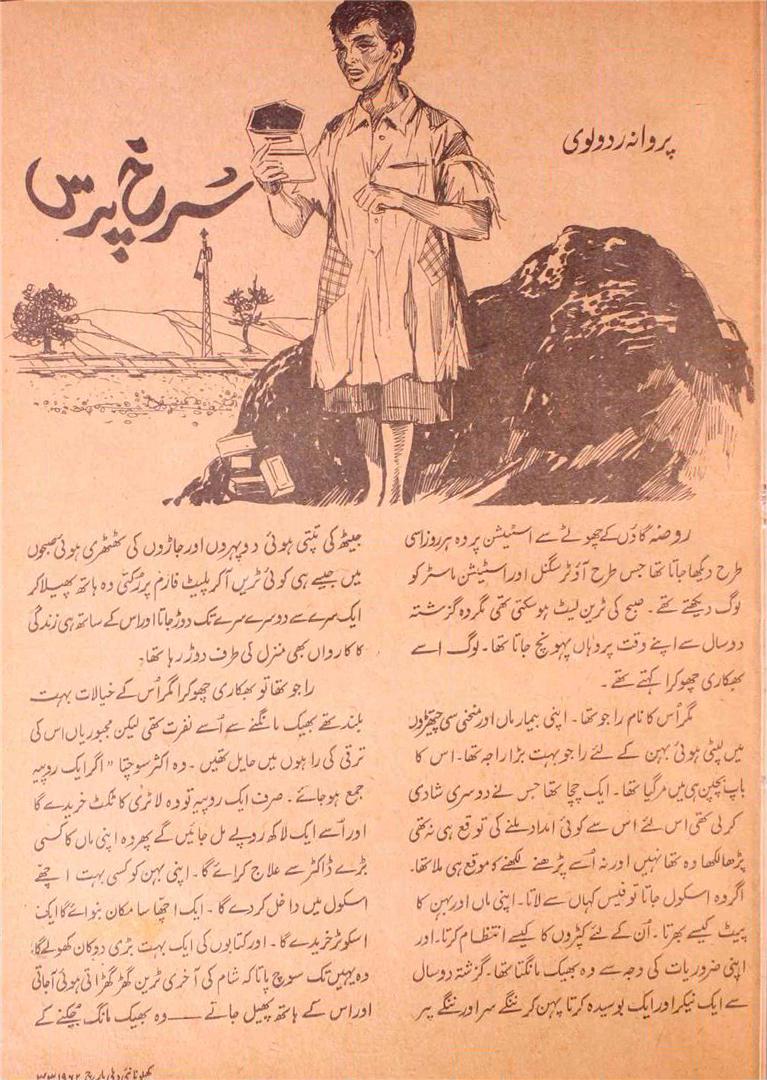 پروانہ ردولوی
سُرخ پرس
روضہ گاؤں کے چھوٹے سے اسٹیشن پر وہ ہر روز اسی
طرح دیکھا جاتا تھا جس طرح آؤٹر سگنل اور اسٹیشن ماسٹر کو
لوگ دیکھتے تھے۔ صبح کی ٹرین لیٹ ہو سکتی تھی مگر وہ گزشتہ
دو سال سے اپنے وقت پر وہاں پہونچ جاتا تھا۔ لوگ اسے
بھکاری چھوکرا کہتے تھے۔
مگر اُس کا نام راجو تھا۔ اپنی بیمار ماں اور منحنی سی چیتھڑوں
میں لپٹی ہوئی بہن کے لئے راجو بہت بڑا راجہ تھا۔ اس کا
باپ بچپن ہی میں مر گیا تھا۔ ایک چچا تھا جس نے دوسری شادی
کر لی تھی اس لئے اس سے کوئی امداد ملنے کی توقع ہی نہ تھی
پڑھا لکھا وہ تھا نہیں اور نہ اُسے پڑھنے لکھنے کا موقع ہی ملا تھا۔
اگر وہ اسکول جاتا تو فیس کہاں سے لاتا۔ اپنی ماں اور بہن کا
پیٹ کیسے بھرتا۔ اُن کے لئے کپڑوں کا کیسے انتظام کرتا۔ اور
اپنی ضروریات کی وجہ سے وہ بھیک مانگتا تھا۔ گزشتہ دو سال
سے ایک نیکر اور ایک بوسیدہ کرتا پہن کر ننگے سر اور ننگے پیر
جیٹھ کی تپتی ہوئی دوپہروں اور جاڑوں کی ٹھٹھری ہوئی صبحوں
میں جیسے ہی کوئی ٹرین آکر پلیٹ فارم پر رُکتی وہ ہاتھ پھیلا کر
ایک سرے سے دوسرے سرے تک دوڑ جاتا اور اس کے ساتھ ہی زندگی
کا کارواں بھی منزل کی طرف دوڑ رہا تھا۔
راجو تھا تو بھکاری چھوکرا مگر اُس کے خیالات بہت
بلند تھے بھیک مانگنے سے اُسے نفرت تھی لیکن مجبوریاں اس کی
ترقی کی راہوں میں حایل تھیں۔ وہ اکثر سوچتا "اگر ایک روپیہ
جمع ہو جائے۔ صرف ایک روپیہ تو وہ لاٹری کا ٹکٹ خریدے گا
اور اُسے ایک لاکھ روپے مل جائیں گے پھر وہ اپنی ماں کا کسی
بڑے ڈاکٹر سے علاج کرائے گا۔ اپنی بہن کو کسی بہت اچھے
اسکول میں داخل کر دے گا۔ ایک اچھا سا مکان بنوائے گا ایک
اسکوٹر خریدے گا۔ اور کتابوں کی ایک بہت بڑی دوکان کھولے گا۔
وہ یہیں تک سوچ پاتا کہ شام کی آخری ٹرین گھڑ گھڑاتی ہوئی آ جاتی
اور اس کے ہاتھ پھیل جاتے —— وہ بھیک مانگ چکنے کے
کھلونا نئی دہلی مارچ